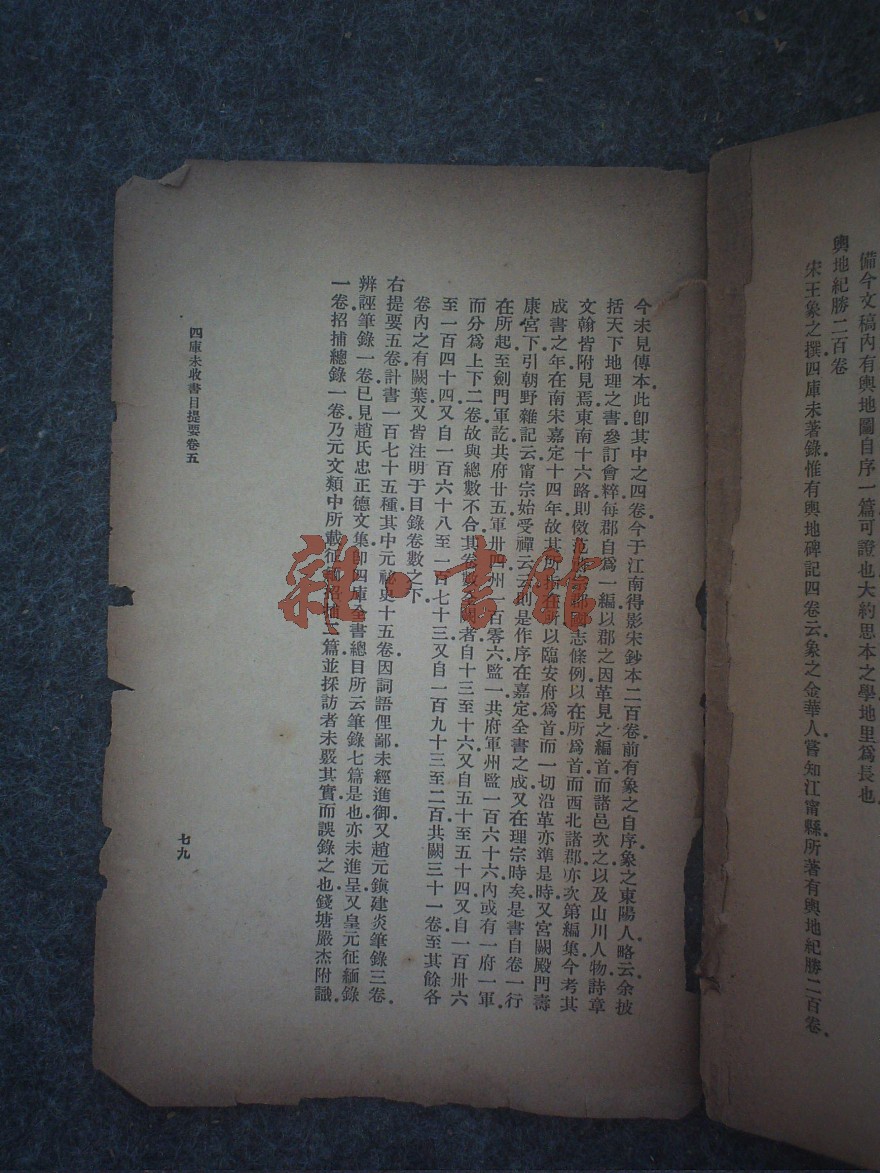 備今文稿內有輿地圖自序一篇可證也大約思本之學地里爲長也
輿地紀勝二百卷
宋王象之撰四庫未著錄惟有輿地碑記四卷云象之金華人嘗知江甯縣所著有輿地紀勝二百卷.
今未見傳本此卽其中之四卷今于江南得影宋鈔本二百卷前有象之自序象之東陽人略云余披
括天下地理之書參訂會粹每郡自爲一編以郡之因革見之編首而諸邑次之以及山川人物詩章
文翰皆附見焉東南十六路則倣 郡國志條例以在所爲首而西北諸郡亦次第編集今考其
成書之年在南宋嘉定十四年故其所 在所以臨安府爲首而一切沿革亦準是時又宮闕殿門壽
康宮下引朝野雜記云甯宗始受禪云云則是作序在嘉定全書之成又在理宗時矣是書自卷一行
在所起至劍門軍訖共府廿五軍卅四州一百零六監一共府軍州監一百六十六內或有一府一軍
而分爲上下二卷故與總數不合其卷數 闕者自十三至十六又自五十至五十四又自一百卅六
至一百四十四又自一百六十八至一百七十三又自一百九十三至二百共闕三十一卷至其餘各
卷內之有闕葉又皆注明于目錄卷數之下
右提要五卷計書一百七十五種其中元祕史十五卷因詞語俚鄙未經進御又趙元鎭建炎筆錄三卷.
辨誣筆錄一卷已見趙氏忠正德文集卽四庫全書總目所云筆錄七篇是也亦未進呈又皇元征緬錄
一卷招捕總錄一卷乃元文類中所載征 招捕二篇並採訪者未覈其實而誤錄之也錢塘嚴杰附識.
四庫未收書目提要卷五
七九
雜·書館